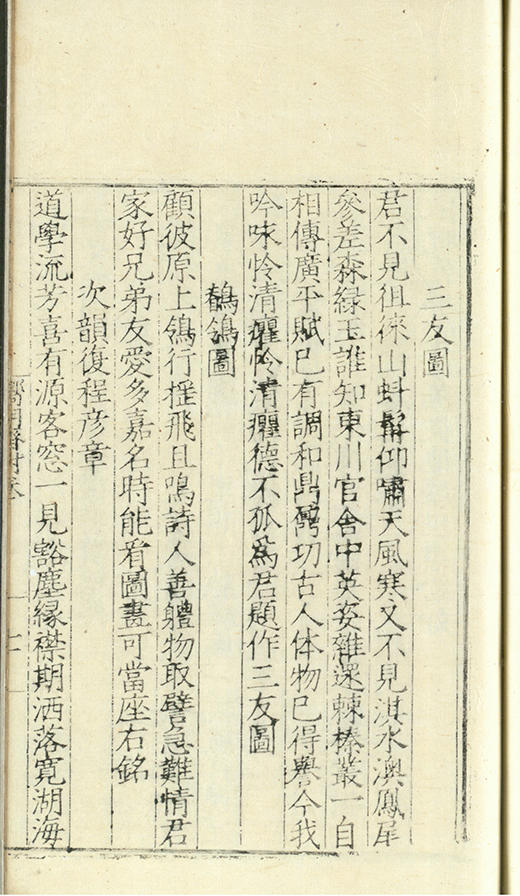 三友圖
君不見徂徠山蚪髯仰嘯天風寒又不見淇水澳鳳尾
參差森緑玉誰知東川官舍中英姿雜遝棘榛叢一自
相傳廣平賦已有調和鼎鼐功古人体物已得譽今我
吟味怜清癯怜清癯德不孤爲君題作三友圖
鶺鴒圖
顧彼原上鴒行揺飛且鳴詩人善軆物取譬急難情君
家好兄弟友愛多嘉名時能看圖畫可當座右銘
次韻復程彦章
道學流芳喜有源客窓一見豁塵縁襟期洒落寛湖海